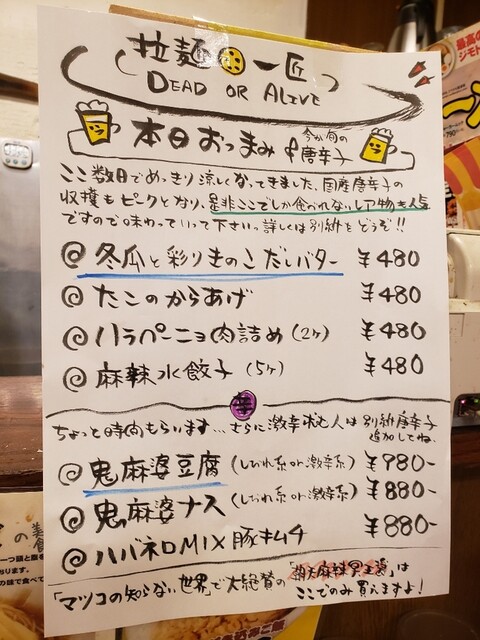 拉麺 一匠
DEAD OR ALIVE
本日おつまみ & 今が旬の唐辛子
ここ数日でめっきり涼しくなってきました、国産唐辛子の
収穫もピークとなり、是非ここでしか食べれないレア物も人気
ですので味わっていって下さいっ詳しくは別紙をどうぞ!!
@冬瓜と彩りきのこだしバター ¥480
@たこのからあげ ¥480
@ハラペーニョ肉詰め(2ヶ) ¥480
@麻辣水餃子(5ヶ) ¥480
辛
ちょっと時間もらいます…さらに激辛求む人は別紙唐辛子
追加してね。
@鬼麻婆豆腐(しびれ系or激辛系) ¥980-
@鬼麻婆ナス(しびれ系or激辛系) ¥880-
@ハバネロMIX豚キムチ ¥880-
「マツコの知らない世界」で大絶賛の は
ここでのみ買えますよ!
最高の
ジモト